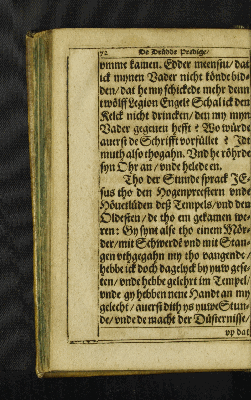 72 De Drüdde Predige/
vmme kamen. Edder meenstu/ dat
ick mynen Vader nicht könde bid⸗
den/ dat he my schickede mehr denn
twölff Legion Engel? Schal ick den
Kelck nicht drincken/ den my myn
Vader gegeuen hefft? Wo würde
auerst de Schrifft vorfüllet? Idt
muth also thogahn. Vnd he rörde
syn Ohr an/ vnde helede en.
Tho der Stunde sprack JE⸗
sus tho den Hogenprestern vnde
Höuetlüden deß Tempels/ vnd den
Oldesten/ de tho em gekamen we⸗
ren: Gy synt alse tho einem Mör⸗
der/ mit Schwerde vnd mit Stan⸗
gen vthgegahn my tho vangende/
hebbe ick doch dagelyck by yuw gese⸗
ten/ vnde hebbe gelehrt im Tempel/
vnde gy hebben nene Handt an my
gelecht/ auerst dith ys yuwe Stun⸗
de/ vnde de macht der Düsternisse/
vp dat